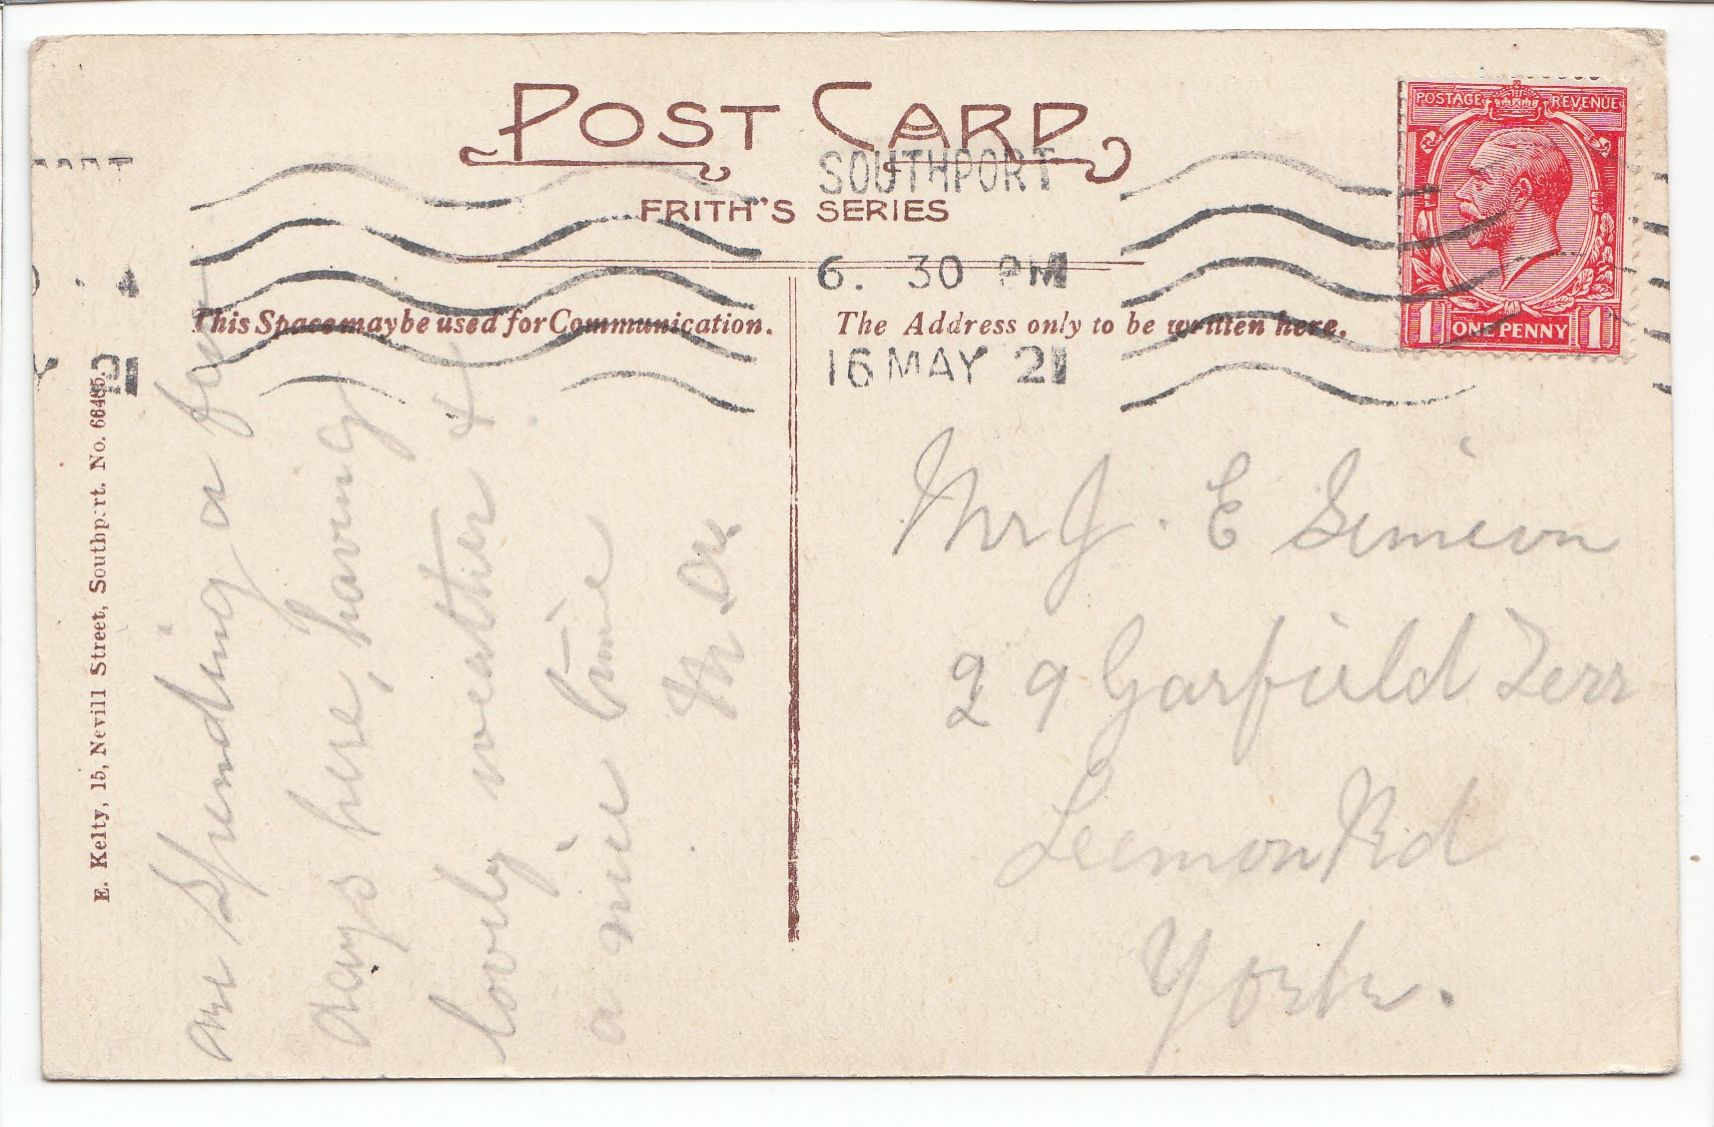 POST CARD
FRITH'S SERIES
SOUTHPORT
6. 30 PM
16 MAY 21
POSTAGE REVENUE
1 ONE PENNY 1
This Space may be used for Communication.
The Address only to be written here.
E. Kelty, 15, Nevill Street, Southport. No. 66485.
are spending a few
days here, having
lovely weather &
a nice time
Mr J. E Simeon
29 Garfield Terr
Leemon Rd
York.